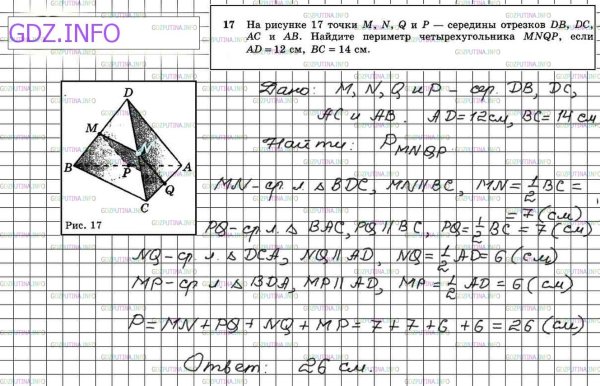 GDZ.INFO
17 На рисунке 17 точки M, N, Q и P — середины отрезков DB, DC,
AC и AB. Найдите периметр четырехугольника MNQP, если
AD = 12 см, BC = 14 см.
Дано: M, N, Q и P – сер. DB, DC,
AC и AB. AD=12см, BC=14см
Найти: P MNQP.
D
M
N
B
P
A
Q
C
Рис. 17
MN-ср л. Δ BDC, MN||BC, MN=1/2 BC =
= 7 (см)
PQ-ср л. Δ BAC, PQ||BC, PQ=1/2 BC = 7 (см)
NQ-ср. л Δ DCA, NQ||AD, NQ=1/2 AD=6 (см)
MP-ср л. Δ BDA, MP||AD, MP=1/2 AD=6 (см)
P=MN+PQ+NQ+MP=7+7+6+6=26 (см)
Ответ: 26 см.